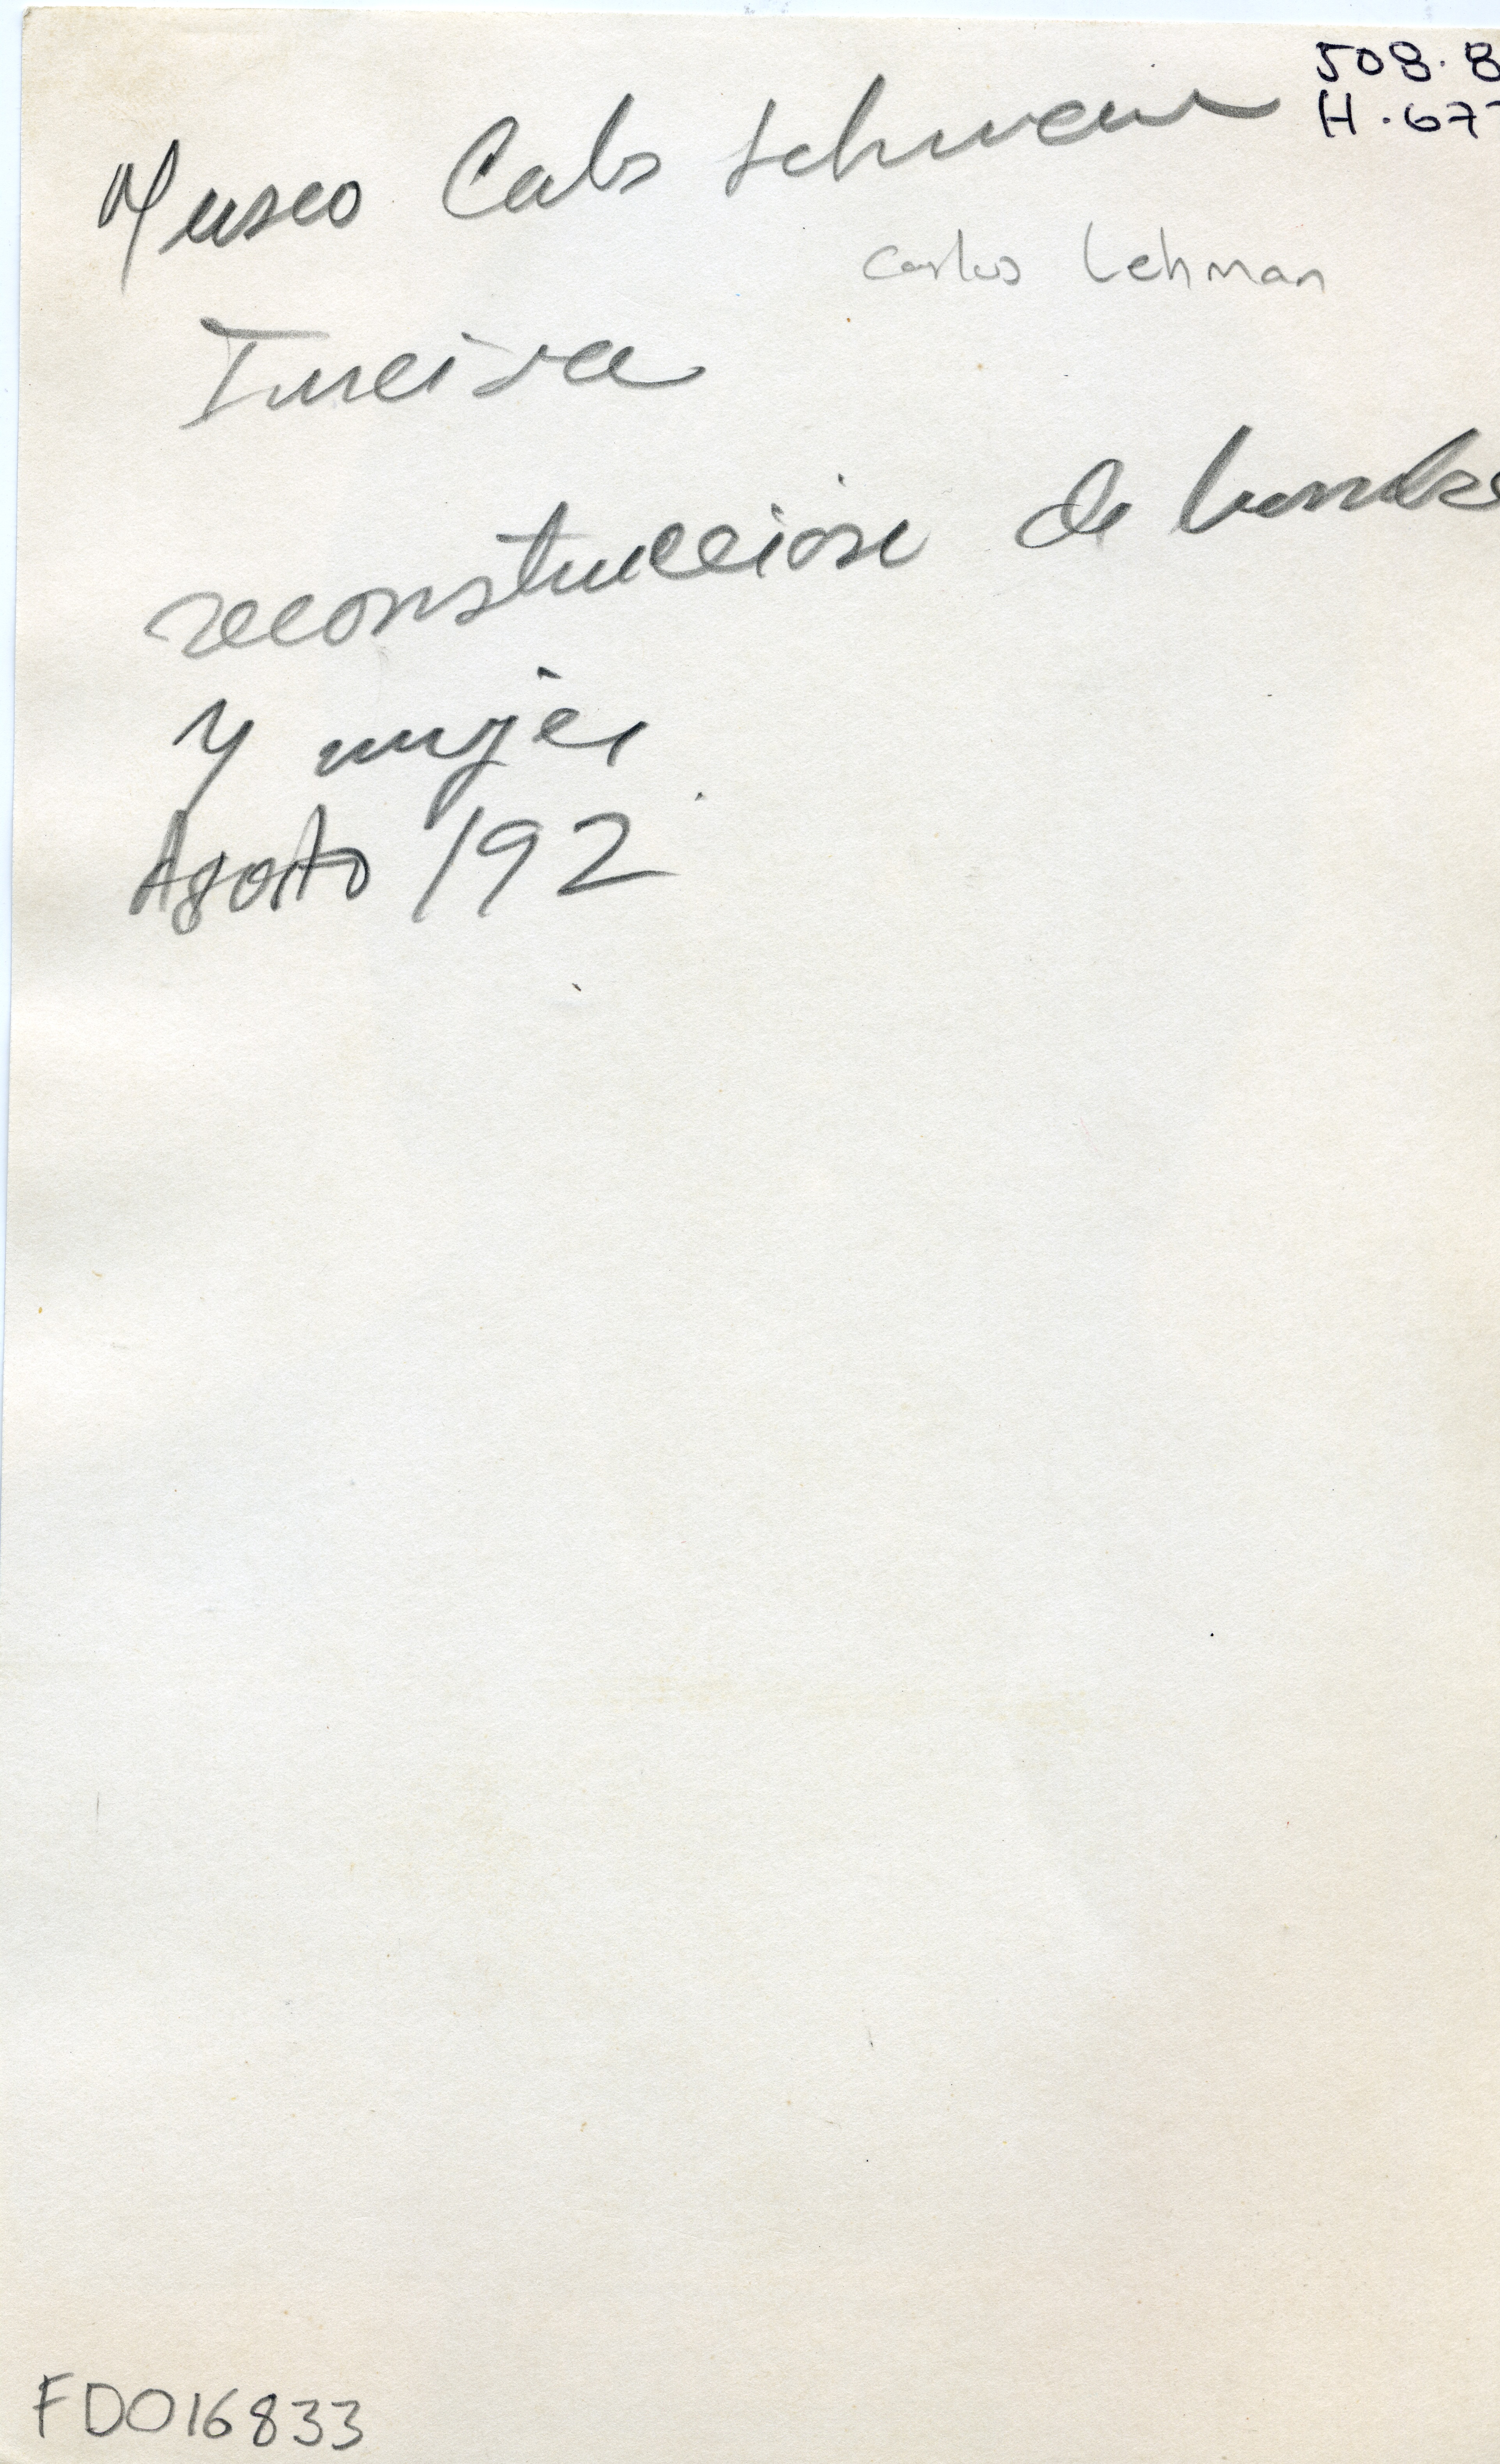 508.8
H.677
Museo Carlos Lehman
Carlos Lehman
Inciva
reconstrucción de hombre
y mujer
Agosto /92
FD016833